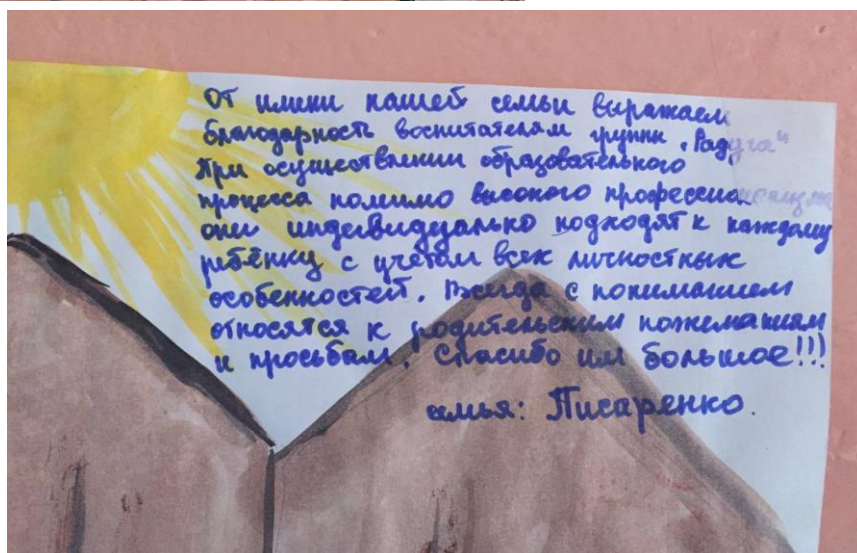 От имени нашей семьи выражаем
благодарность воспитателям группы „Радуга“
При осуществлении образовательного
процесса помимо высокого профессионализма
они индивидуально подходят к каждому
ребёнку с учётом всех личностных
особенностей. Всегда с пониманием
относятся к родительским пожеланиям
и просьбам. Спасибо им большое!!!
семья: Писаренко.